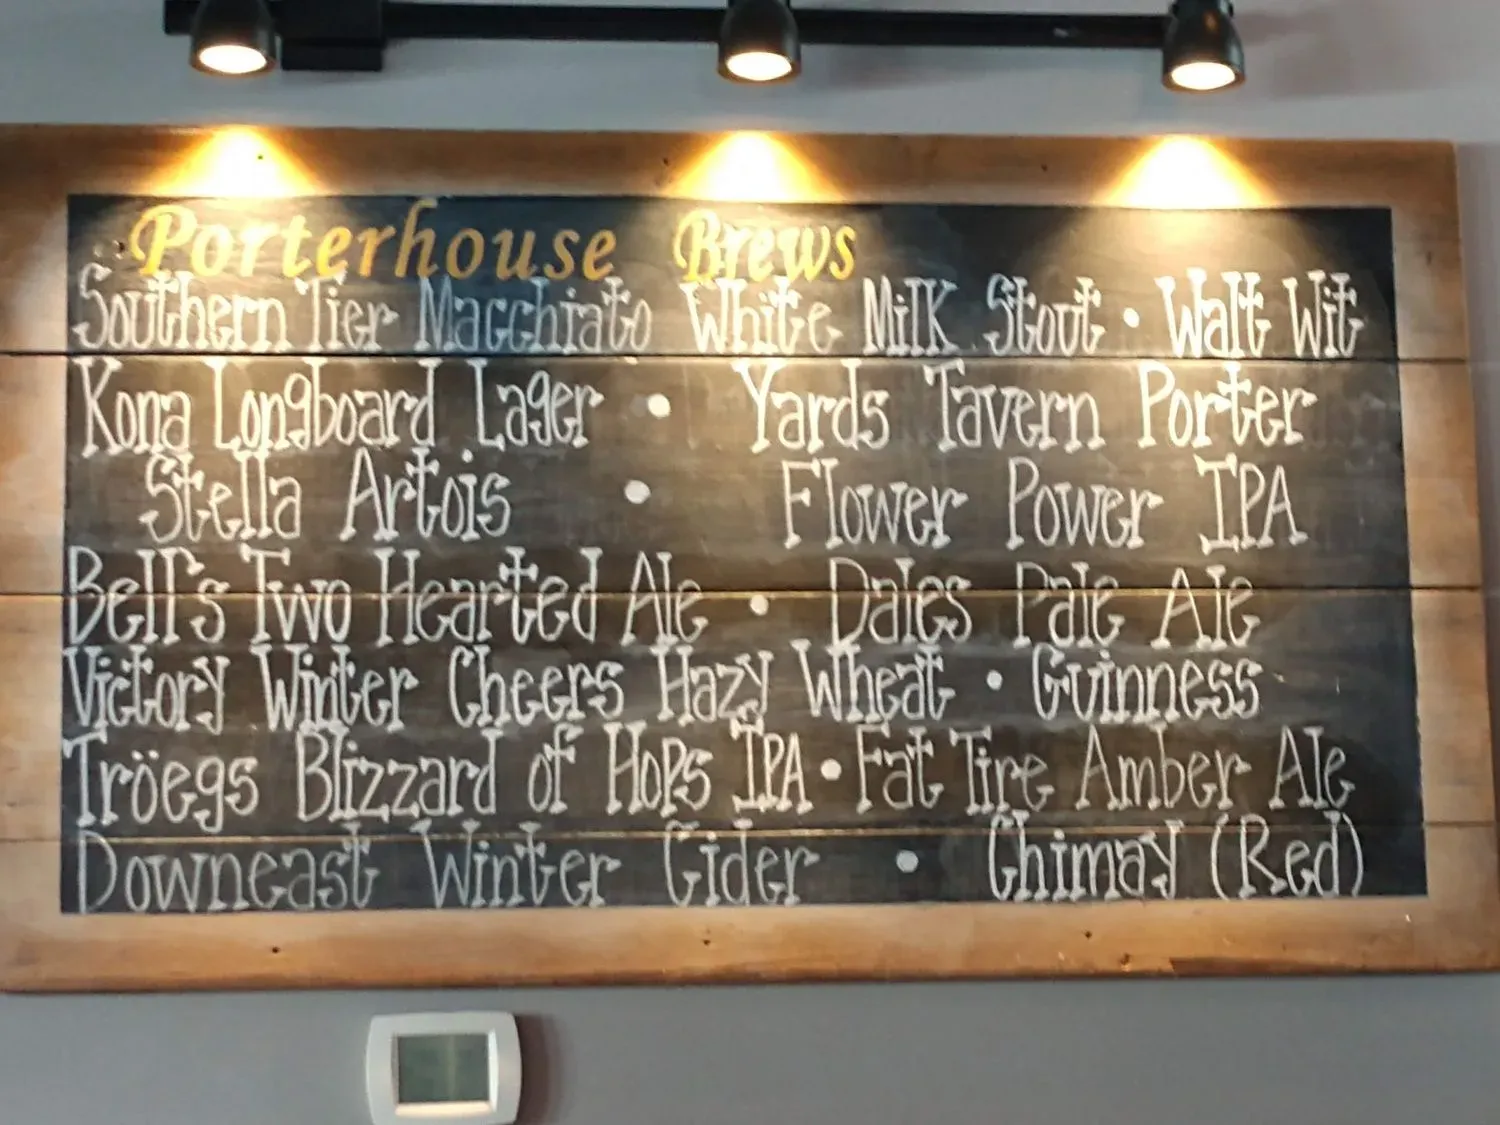 Porterhouse Brews
Southern Tier Macchiato White Milk Stout • Walt Wit
Kona Longboard Lager • Yards Tavern Porter
Stella Artois • Flower Power IPA
Bell's Two Hearted Ale • Dales Pale Ale
Victory Winter Cheers Hazy Wheat • Guinness
Tröegs Blizzard of Hops IPA • Fat Tire Amber Ale
Downeast Winter Cider • Chimay (Red)